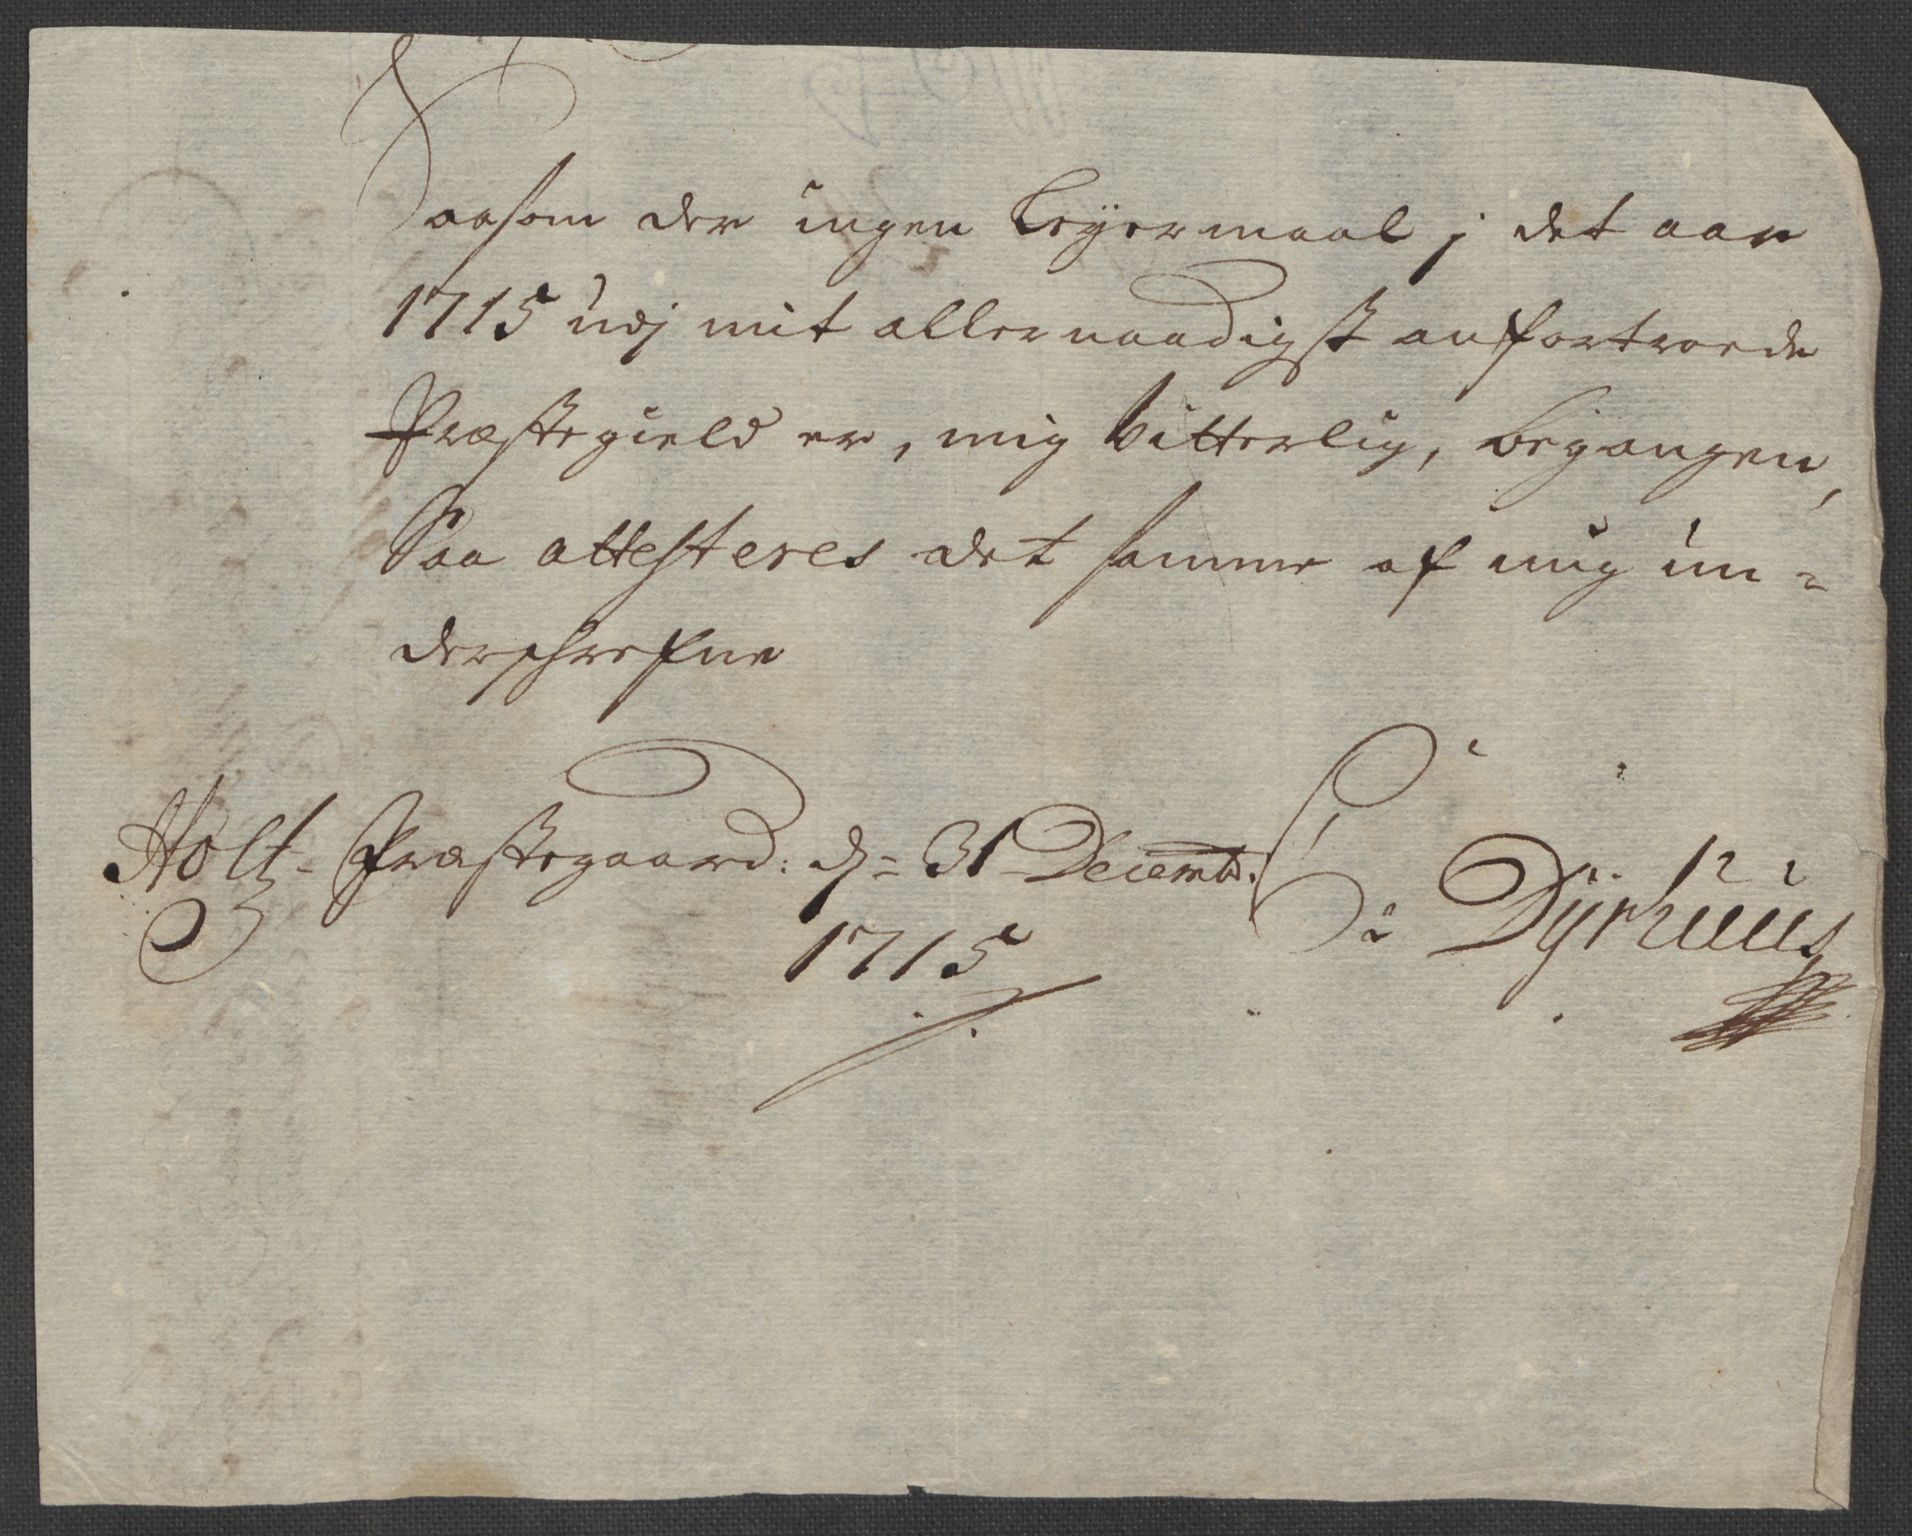 Saasom der ingen Leyermaal j det aar
1715 udj mit allernaadigst anfortroede
Præstegield er, mig vitterlig, begangen,
Saa attesteres det samme af mig un=
derschrefne
Holt Præstegaard: d= 31 Decemb.
1715
Dyrhuus